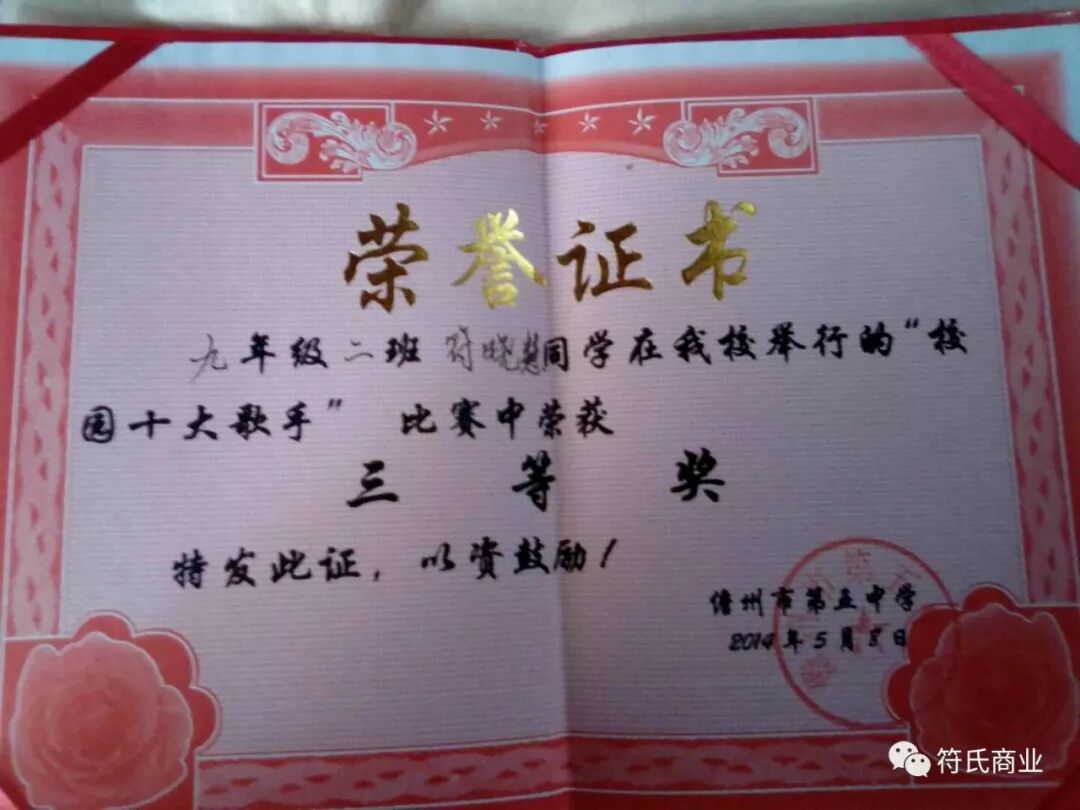 荣誉证书
九年级二班 符晓慧同学在我校举行的“校
园十大歌手” 比赛中荣获
三等奖
特发此证，以资鼓励！
儋州市第五中学
2014年5月8日
符氏商业